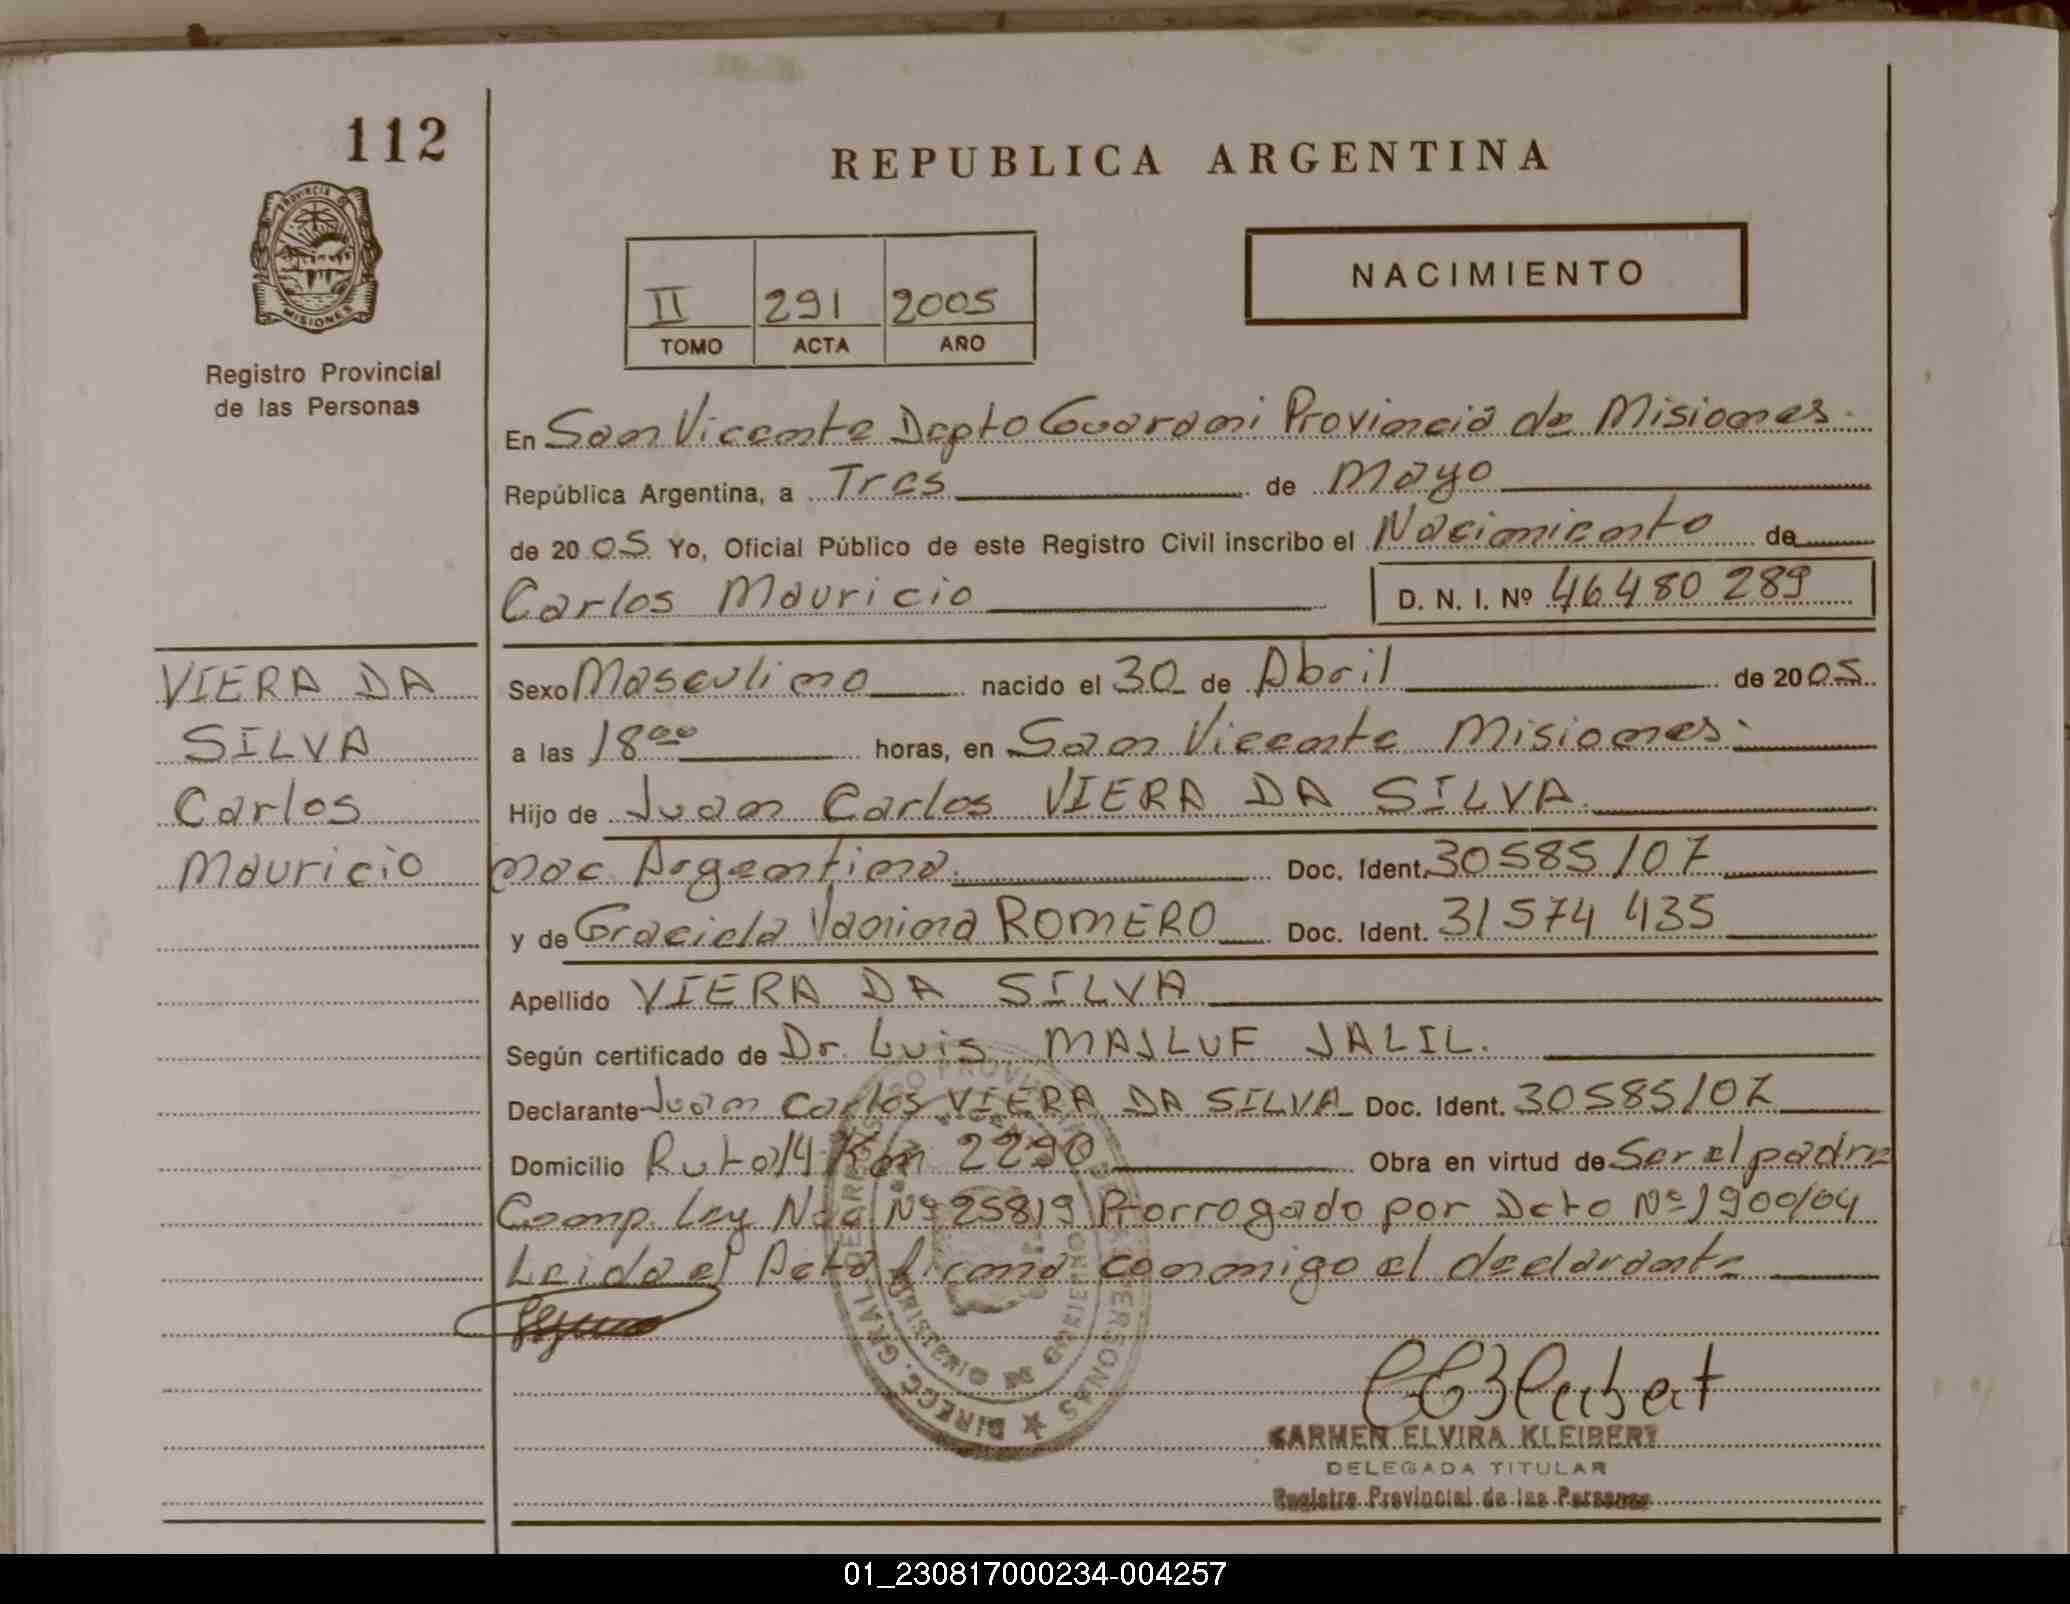 112
REPUBLICA ARGENTINA
PROVINCIA DE
MISIONES
Registro Provincial
de las Personas
II 291 2005
TOMO ACTA AÑO
NACIMIENTO
En San Vicente Depto Guarani Provincia de Misiones.
República Argentina, a Tres de Mayo
de 2005 Yo, Oficial Público de este Registro Civil inscribo el Nacimiento de
Carlos Mauricio D. N. I. Nº 46.480 289
VIERA DA
SILVA
Carlos
Mauricio
Sexo Masculino nacido el 30 de Abril de 2005
a las 18⁰⁰ horas, en San Vicente Misiones.
Hijo de Juan Carlos VIERA DA SILVA
nac Argentina. Doc. Ident. 30585107
y de Graciela Vanina ROMERO Doc. Ident. 31574 435
Apellido VIERA DA SILVA
Según certificado de Dr. Luis MAJLUF JALIL.
Declarante Juan Carlos VIERA DA SILVA Doc. Ident. 30585107
Domicilio Ruta 14 Km 2290 Obra en virtud de Ser el padre
Comp. Ley Nac Nº 25819 Prorrogado por Dcto Nº 1900/04
Leida el Acta firma conmigo el declarante
CARMEN ELVIRA KLEIBERT
DELEGADA TITULAR
Registro Provincial de las Personas
01_230817000234-004257